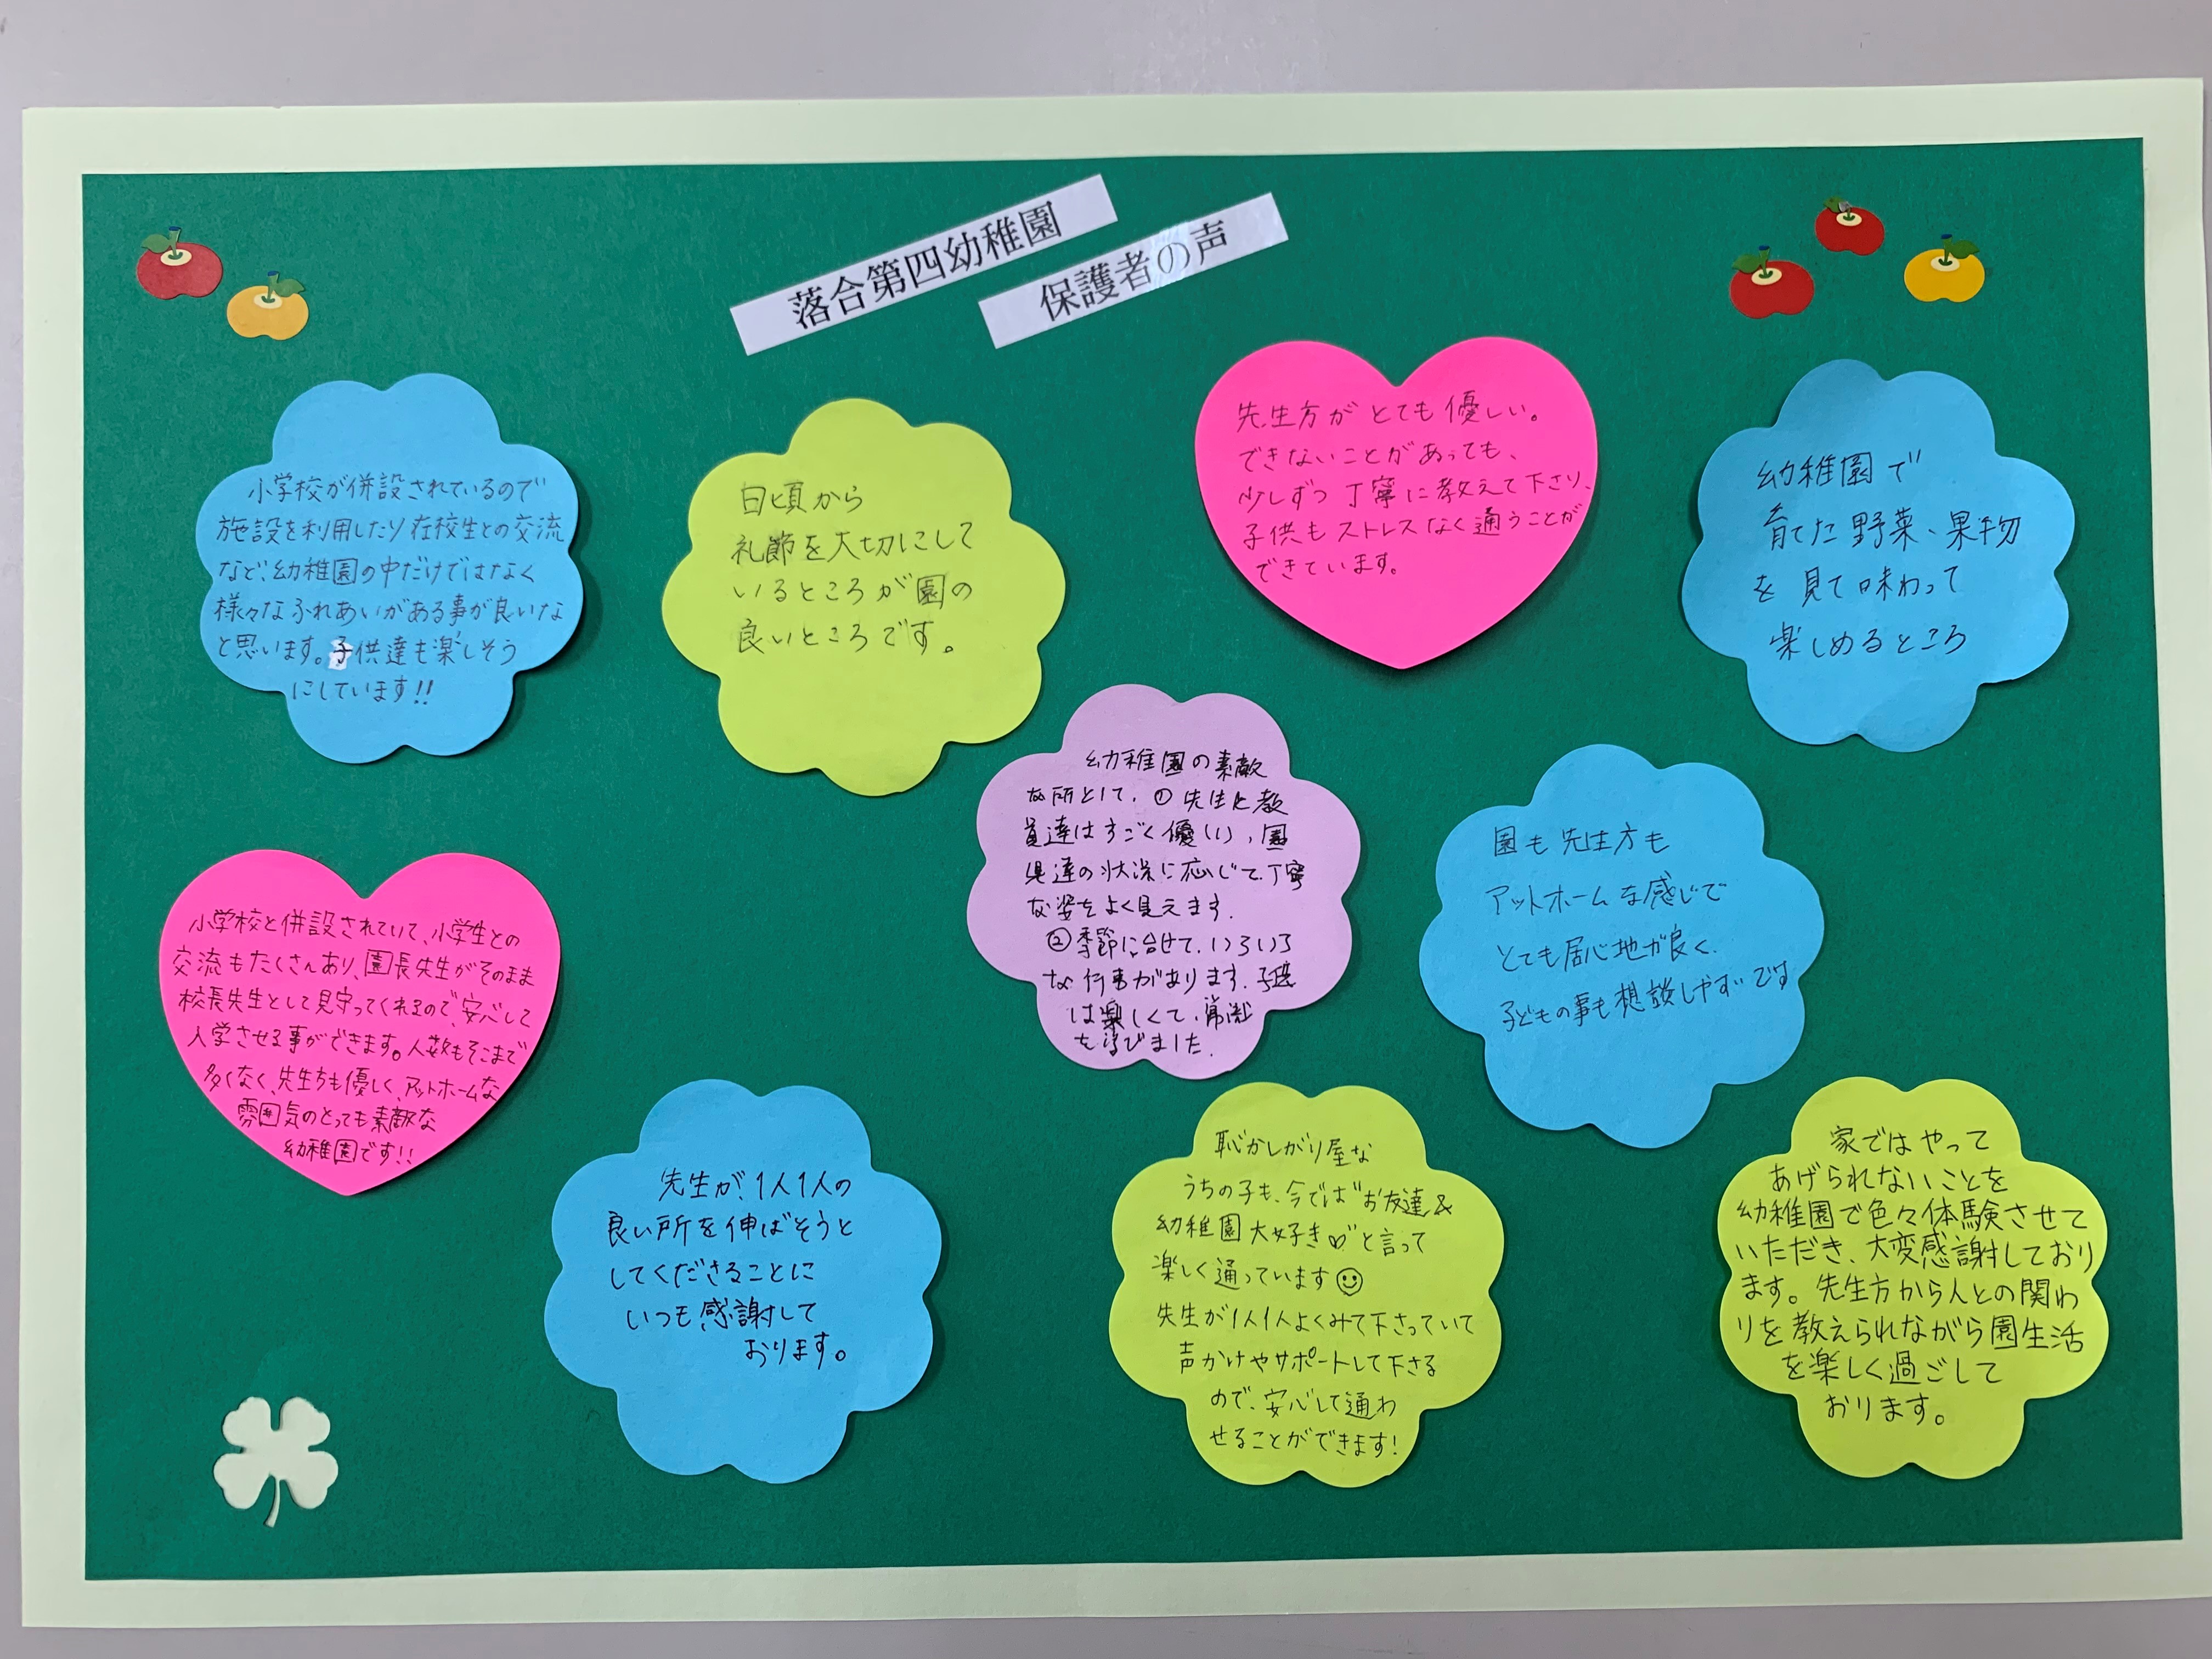 落合第四幼稚園
保護者の声
小学校が併設されているので
施設を利用したり在校生との交流
など、幼稚園の中だけではなく
様々なふれあいがある事が良いな
と思います。子供達も楽しそう
にしています!!
日頃から
礼節を大切にして
いるところが園の
良いところです。
先生方がとても優しい。
できないことがあっても、
少しずつ丁寧に教えて下さり、
子供もストレスなく通うことが
できています。
幼稚園で
育てた野菜、果物
を見て味わって
楽しめるところ
幼稚園の素敵
な所として、① 先生と教
員達はすごく優しい、園
児達の状況に応じて、丁寧
な姿をよく見えます.
②季節に合せて、いろいろ
な行事があります。子供
は楽しくて、
を学びました.
園も先生方も
アットホームな感じで
とても居心地が良く、
子どもの事も相談しやすいです
小学校と併設されていて、小学生との
交流もたくさんあり、園長先生がそのまま
校長先生として見守ってくれるので、安心して
入学させる事ができます。人数もそこまで
多くなく、先生方も優しく、アットホームな
雰囲気のとっても素敵な
幼稚園です!!
先生が、1人1人の
良い所を伸ばそうと
してくださることに
いつも感謝して
おります。
恥かしがり屋な
うちの子も、今では“お友達&
幼稚園大好き♡”と言って
楽しく通っています☺
先生が1人1人よくみて下さっていて
声かけやサポートして下さる
ので、安心して通わ
せることができます!
家ではやって
あげられないことを
幼稚園で色々体験させて
いただき、大変感謝しており
ます。先生方から人との関わ
りを教えられながら園生活
を楽しく過ごして
おります。